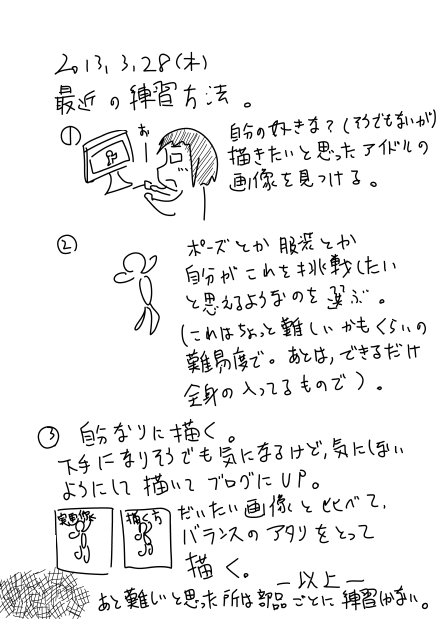 2013.3.28(木)
最近の練習方法。
① お
自分の好きな?(そうでもないが)
描きたいと思ったアイドルの
画像を見つける。
②
ポーズとか服装とか
自分がこれを挑戦したい
と思えるようなのを選ぶ。
(これはちょっと難しいかもくらいの
難易度で。あとは、できるだけ
全身の入ってるもので)。
③ 自分なりに描く。
下手になりそうでも気になるけど、気にしない
ようにして描いてブログにUP。
実画像 描く方
だいたい画像と比べて、
バランスのアタリをとって
描く。
ー以上ー
あと難しいと思った所は部品ごとに練習かない。